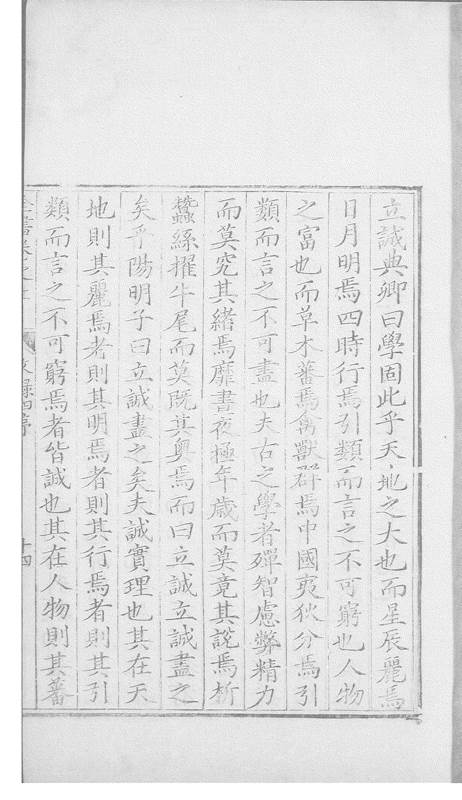 立誠典卿曰學固此乎天地之大也而星辰麗焉
日月明焉四時行焉引類而言之不可窮也人物
之富也而草木蕃焉禽獸群焉中國夷狄分焉引
類而言之不可盡也夫古之學者殫智慮弊精力
而莫究其緒焉靡晝夜極年歲而莫竟其說焉析
蠶絲擢牛尾而莫既其奧焉而曰立誠立誠盡之
矣乎陽明子曰立誠盡之矣夫誠實理也其在天
地則其麗焉者則其明焉者則其行焉者則其引
類而言之不可窮焉者皆誠也其在人物則其蕃
文錄四序 十四